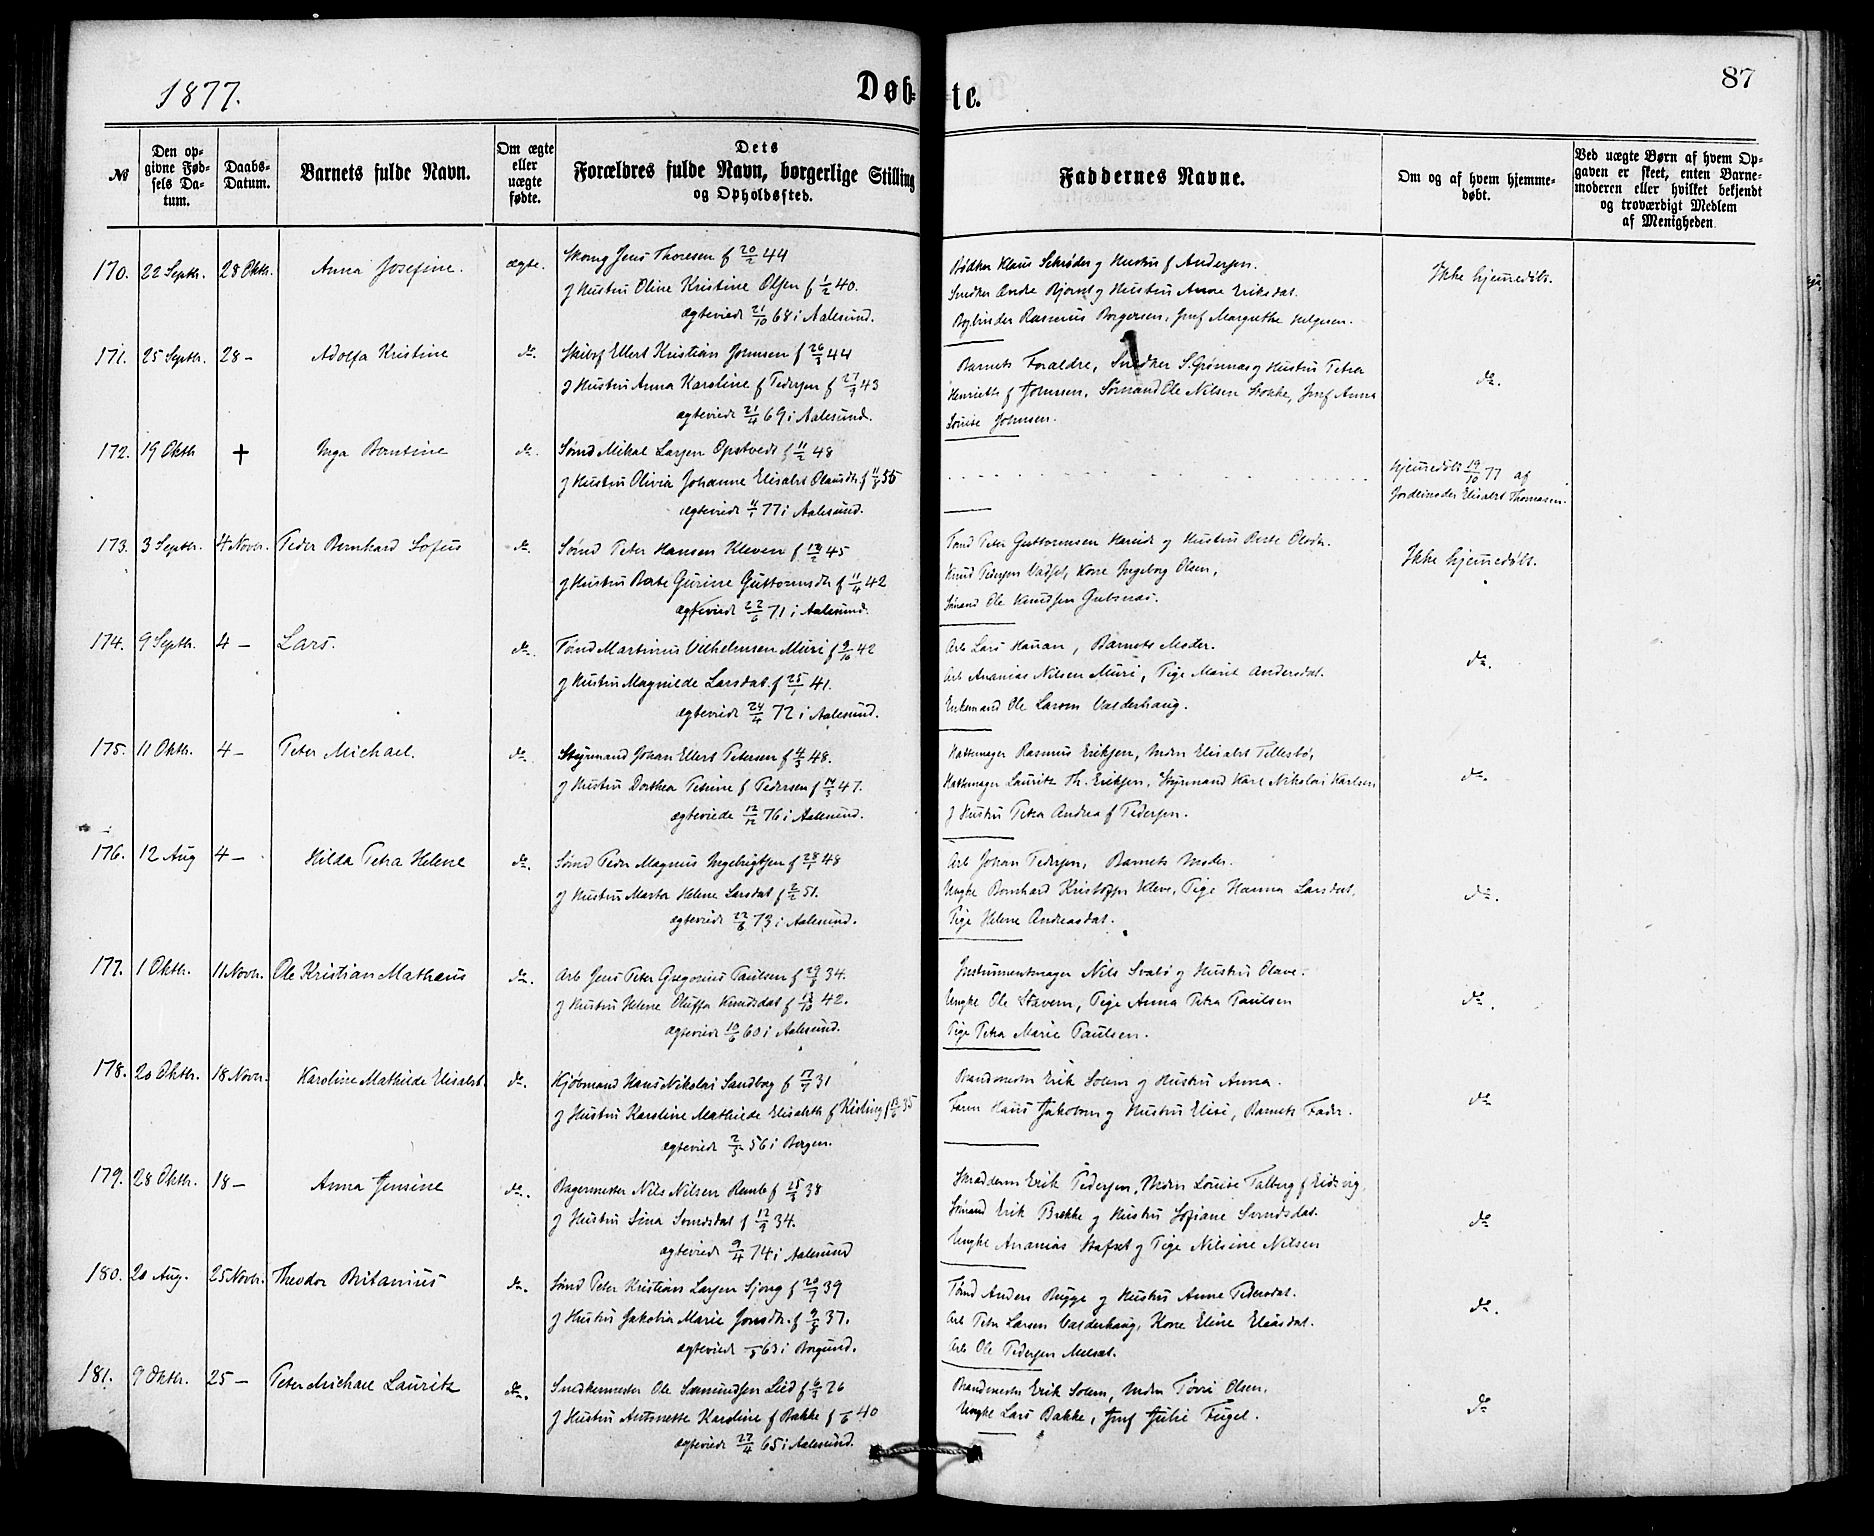 1877.
Døb-
te.
87
№
Den op-
givne Fød-
sels Da-
tum.
Daabs-
Datum.
Barnets fulde Navn.
Om ægte
eller
uægte
fødte.
Dets
Forældres fulde Navn, borgerlige Stilling
og Opholdssted.
Faddernes Navne.
Om og af hvem hjemme-
døbt.
Ved uægte Børn af hvem Op-
gaven er skeet, enten Barne-
moderen eller hvilket bekjendt
og troværdigt Medlem
af Menigheden
170. 22 Septb. 28 Oktb. Anna Josefine. ægte. Jens Thoresen f 20/2 44
g Hustru Oline Kristine Olsen f 1/2 40.
ægteviede 21/10 68 i Aalesund.
Bødker Klaus Schrøder g Hustru f Andersen.
Snedker Andre Bjornt g Hustru Anne Eriksdat.
Bogbinder Rasmus Borgersen, Jmf Margrethe Helgesen.
Ikke hjemmedøbt.
171. 25 Septb. 28 – Adolfa Kristine do. Skibsf Ellert Kristian Johnsen f 26/3 44
g Hustru Anna Karoline f Pedersen f 27/9 43
ægteviede 21/4 69 i Aalesund.
Barnets Forældre, Snedker S. Grønnas g Hustru Petra
Henriette f Johnsen, Sømand Ole Nilsen Stokke, Jmf Anna
Louise Johnsen.
do.
172. 19 Oktb + Inga Berntine do. Sømd Mikal Larsen Opstvedt f 11/2 48
g Hustru Olivia Johanne Elisabet Olausdt f 11/8 56
ægteviede 4/1 77 i Aalesund.
hjemmedøbt 19/10 77 af
Jordemoder Elisabet Thomasen.
173. 3 Septb. 4 Novb. Peder Bernhard Sofus do. Sømd Peter Hansen Kleven f 12/2 45
g Hustru Berte Gurine Guttormsdt f 11/4 42
ægteviede 22/6 71 i Aalesund.
Tømd Peter Guttormsen Hareide g Hustru Berte Olsdt.
Knud Pedersen Vadset, Kone Ingeborg Olsen,
Sømand Ole Knudsen
Ikke hjemmedøbt.
174. 9 Septb. 4 – Lars. do. Tømd Martinus Vilhelmsen Muri f 9/10 42
g Hustru Magnilde Larsdat. f 25/1 41.
ægteviede 24/4 72 i Aalesund.
Arb Lars Hauan, Barnets Moder.
Arb Ananias Nilsen Muri, Pige Marit Andersdat.
Enkemand Ole Larsen Valderhaug.
do.
175. 11 Oktb. 4 – Peter Michael. do. Styrmand Johan Ellert Petersen f 4/3 48.
g Hustru Dorthea Petrine f Pedersen f 14/3 47.
ægteviede 12/12 76 i Aalesund.
Hattemager Rasmus Eriksen, Mdm Elisabet Tillesbø,
Hattemager Lauritz Th. Eriksen, Styrmand Karl Nikolai Karlsen
g Hustru Petra Andrea f Pedersen.
do.
176. 12 Aug 4 – Hilda Petra Helene do. Sømd Peder Magnus Ingebrigtsen f 28/1 48
g Hustru Marta Helene Larsdat f 2/2 51.
ægteviede 22/6 73 i Aalesund.
Arb Johan Pedersen, Barnets Moder.
Ungke Bernhard Kristoffer Kleve, Pige Hanna Larsdat.
Pige Helene Andreasdat.
do.
177. 1 Oktb. 11 Novb. Ole Kristian Matheus do. Arb Jens Peter Gregorius Paulsen f 29/3 34.
g Hustru Helene Oluffa Knudsdat f 13/10 42.
ægteviede 10/6 60 i Aalesund.
Instrumentmager Nils Svabø g Hustru Olave.
Ungke Ole Stavem, Pige Anna Petra Paulsen
Pige Petra Marie Paulsen.
do.
178. 20 Oktb. 18 Novb. Karoline Mathilde Elisabet do. Kjøbmand Hans Nikolai Sandbog f 17/7 31
g Hustru Karoline Mathilde Elisabeth f Kisling f 35
ægteviede 2/3 56 i Bergen.
Brandmester Erik Solem g Hustru Anna.
Farver Hans Jakobsen g Hustru Elise, Barnets Fader.
do
179. 28 Oktb. 18 – Anna Jensine do. Bagermester Nils Nilsen Remb f 25/3 38
g Hustru Sina Svendsdat f 12/9 34.
ægteviede 9/4 74 i Aalesund
Skrædderm Erik Pedersen, Mdm Louise Talberg f Eidsvig,
Sømand Erik Brekke g Hustru Sofiane Svendsdat.
Ungke Ananias Stafset g Pige Nilsine Nilsen
do
180. 20 Aug. 25 Novb. Theodor Britanius do. Sømd Peter Kristian Larsen Sjong f 20/7 39
g Hustru Jakobia Marie Jonsdt. f 9/3 37.
ægteviede –/8 63 i Borgund.
Tømd Anders Bugge g Hustru Anne Pedersdat.
Arb Peter Larsen Valderhaug, Kone Eline Eliasdat.
Arb Ole Pedersen Melsæt.
do.
181. 9 Oktb. 25 – Peter Michael Lauritz do. Snedkermester Ole Sæmundsen Lied f 6/3 26
g Hustru Antonette Karoline f Bakke f –/6 40
ægteviede 27/4 65 i Aalesund.
Brandmester Erik Solem, Mdm Tøvri Olsen,
Ungke Lars Bakke, Jmf Julie Fugel.
do